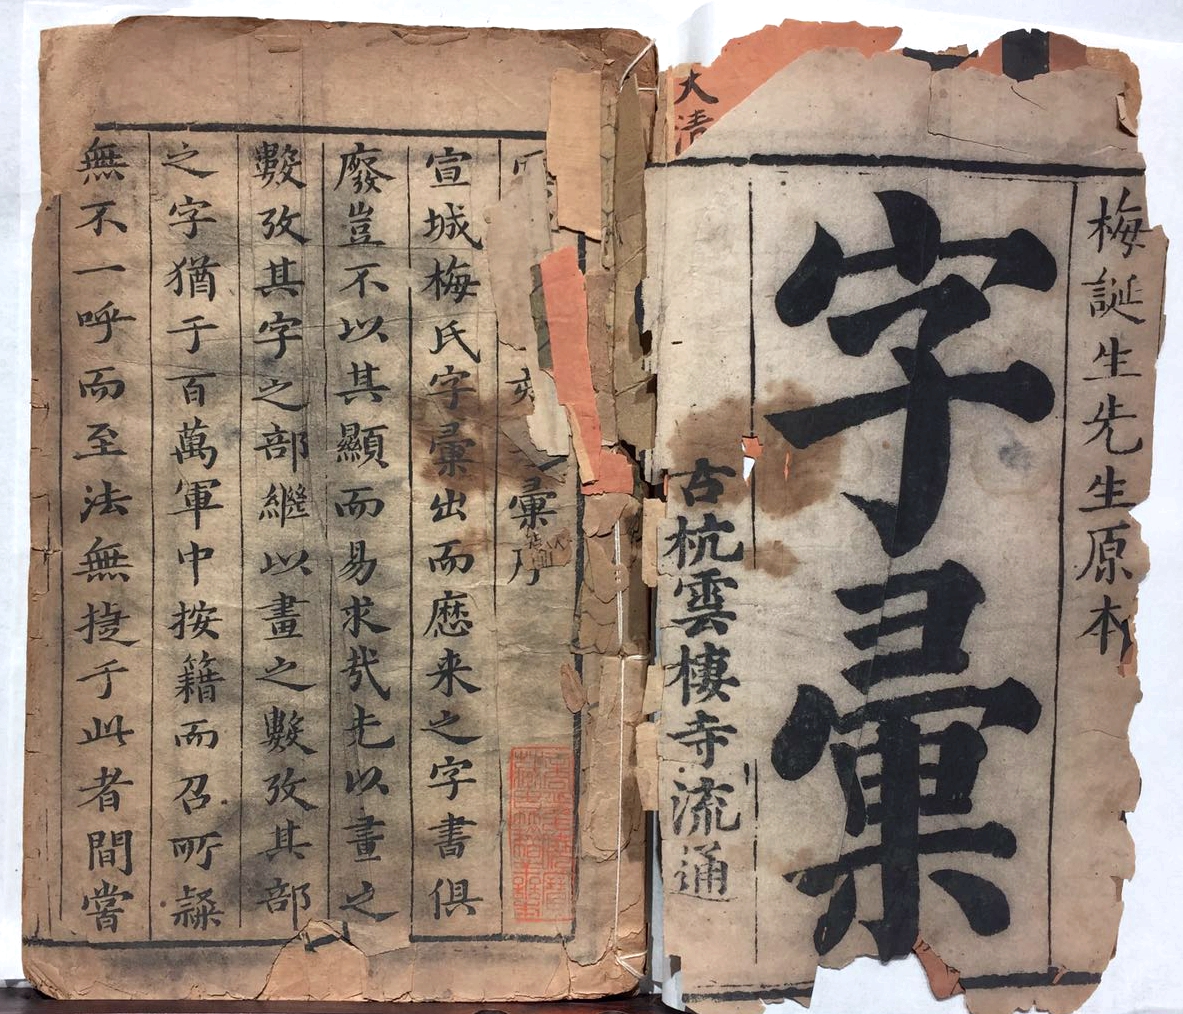 大清
梅誕生先生原本
字彙
古杭雲棲寺流通
彙序
宣城梅氏字彙出而歷来之字書俱
廢豈不以其顯而易求哉先以畫之
數攷其字之部繼以畫之數攷其部
之字猶于百萬軍中按籍而召所隸
無不一呼而至法無捷于此者間嘗